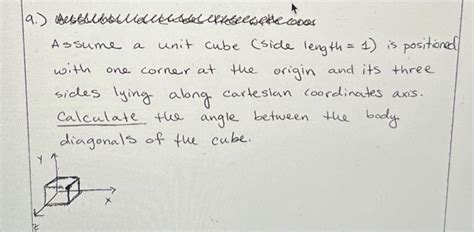 a.)
Assume a unit cube (side length = 1) is positioned
with one corner at the origin and its three
sides lying along cartesian coordinates axis.
Calculate the angle between the body
diagonals of the cube.
Y
X
Z